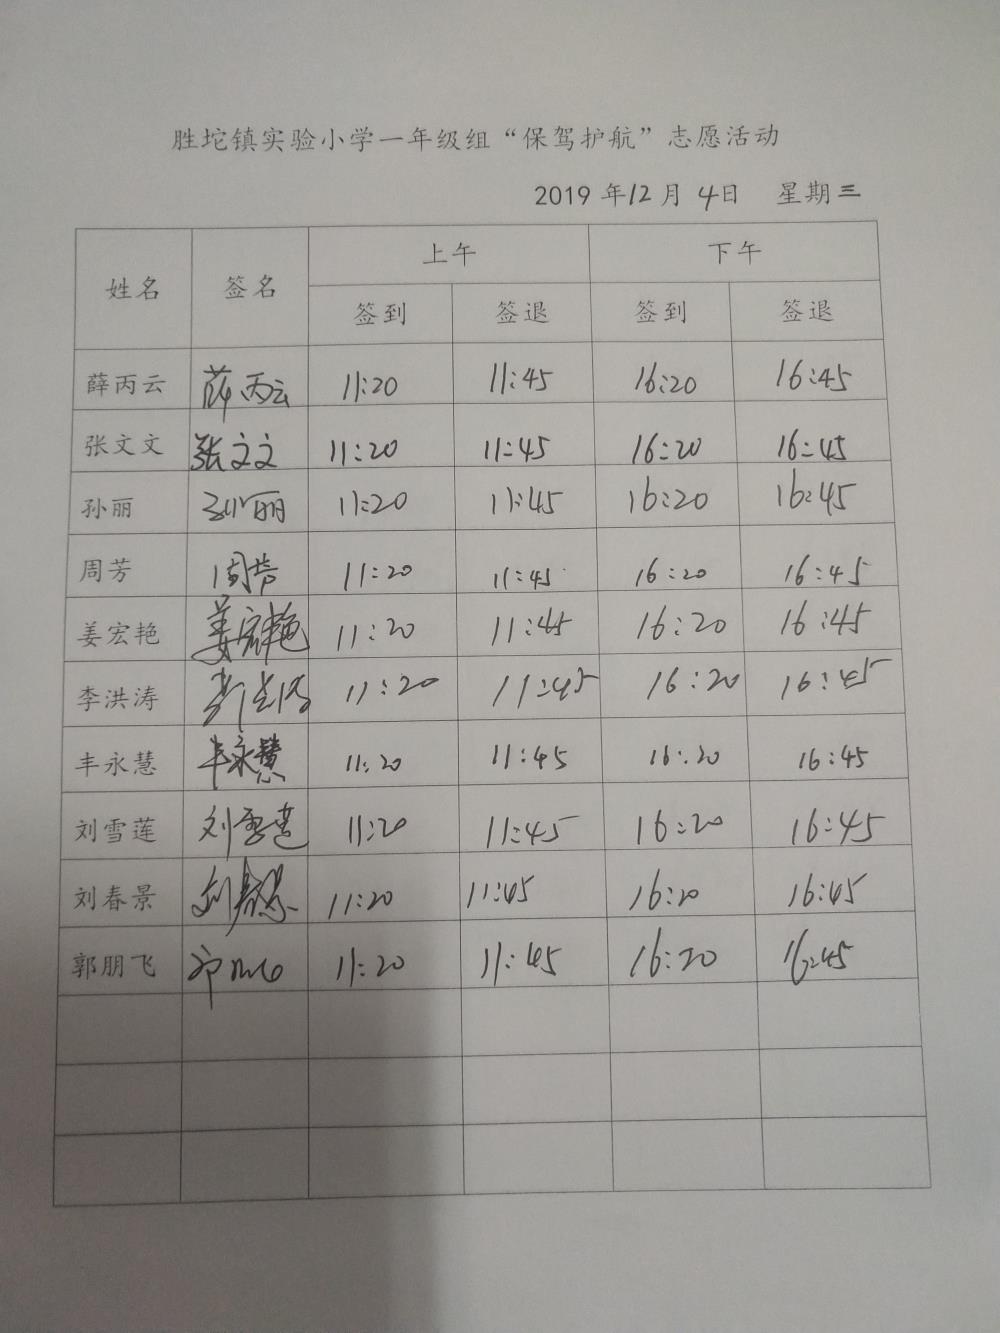 胜坨镇实验小学一年级组“保驾护航”志愿活动
2019 年12月 4日 星期三
姓名 签名 上午 下午
签到 签退 签到 签退
薛丙云 薛丙云 11:20 11:45 16:20 16:45
张文文 张文文 11:20 11:45 16:20 16:45
孙丽 孙丽 11:20 11:45 16:20 16:45
周芳 周芳 11:20 11:45 16:20 16:45
姜宏艳 姜宏艳 11:20 11:45 16:20 16:45
李洪涛 李洪涛 11:20 11:45 16:20 16:45
丰永慧 丰永慧 11:20 11:45 16:20 16:45
刘雪莲 刘雪莲 11:20 11:45 16:20 16:45
刘春景 刘春景 11:20 11:45 16:20 16:45
郭朋飞 11:20 11:45 16:20 16:45